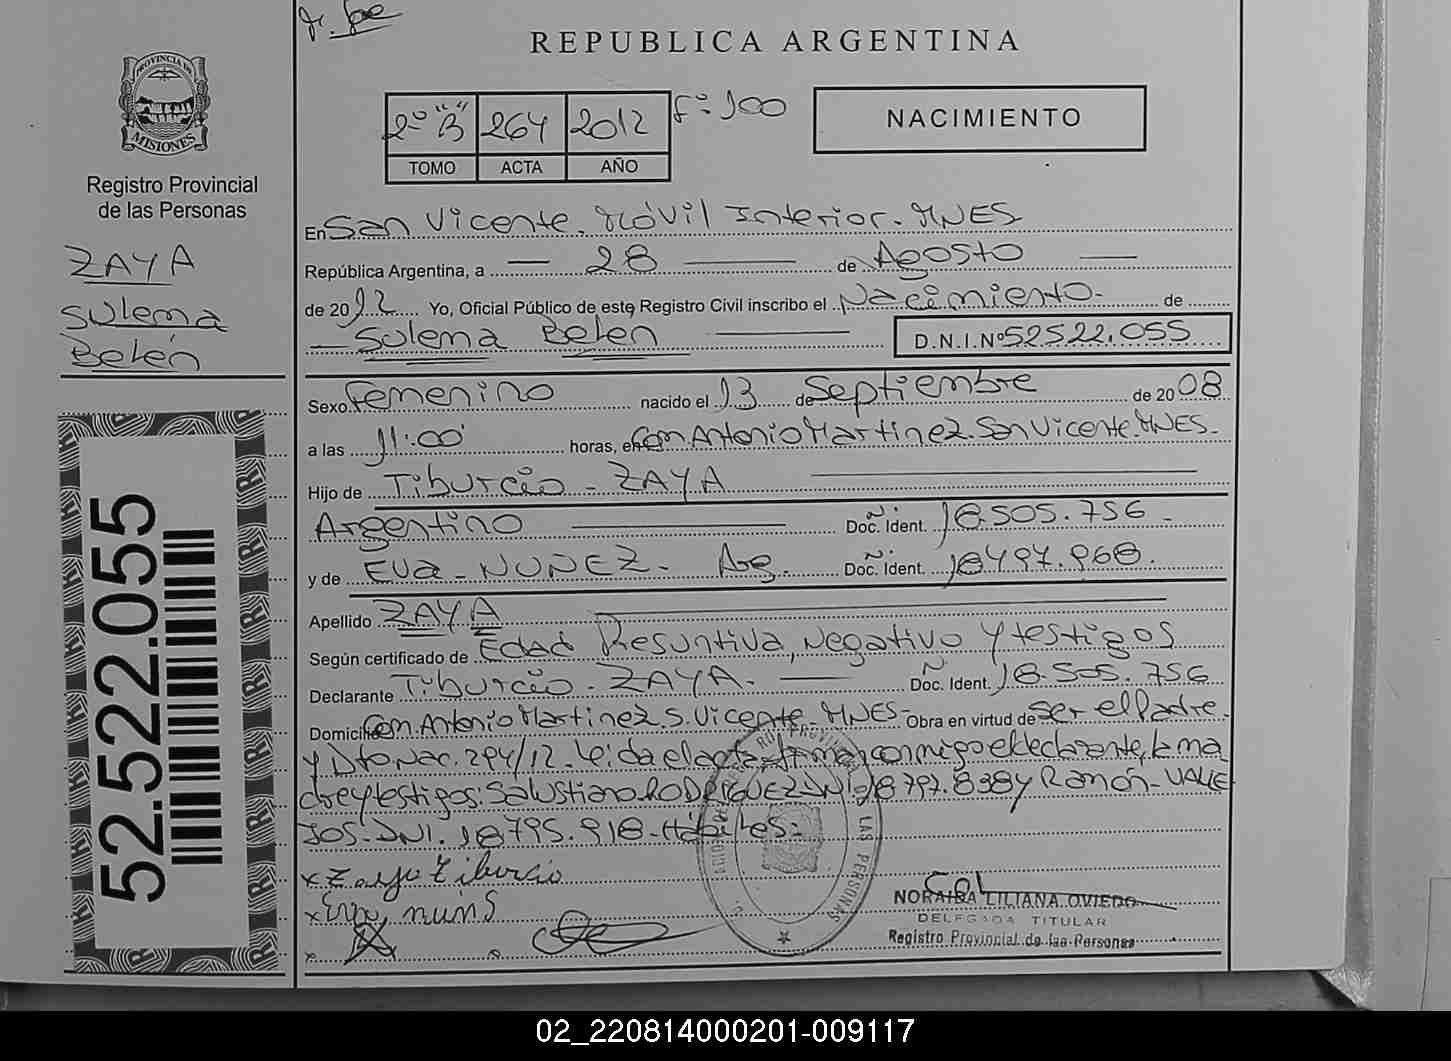 REPUBLICA ARGENTINA
PROVINCIA DE
MISIONES
Registro Provincial
de las Personas
ZAYA
Sulema
Belén
52.522.055
2º "B" 264 2012 Fº 100
TOMO ACTA AÑO
NACIMIENTO
En San Vicente. Móvil Interior. MNES
República Argentina, a — 28 — de Agosto —
de 2012 Yo, Oficial Público de este Registro Civil inscribo el Nacimiento- de
— Sulema Belen — D.N.I.Nº 52522.055
Sexo Femenino nacido el 13 de Septiembre de 2008
a las 11:00 horas, en Com. Antonio Martinez. San Vicente. MNES-
Hijo de Tiburcio - ZAYA —
Argentino — Doc. Ident. 18.505.756 -
y de Eva - NUÑEZ. Arg. Doc. Ident. 18497.968.
Apellido ZAYA —
Según certificado de Edad Presuntiva, Negativo y testigos
Declarante Tiburcio - ZAYA. — Doc. Ident. 18.505.756
Domicilio Com. Antonio Martinez S. Vicente- MNES- Obra en virtud de Ser el Padre
y Dto. Nac. 294/12. Leida el acta, firman conmigo el declarante, la ma
dre y testigos: Salustiano RODRIGUEZ DNI 18797.838 y Ramón- VALLE
JOS- DNI. 18795.918- Hábiles-
x Zaya Tiburcio
x Eva, nuns
NORAIBA LILIANA OVIEDO
DELEGADA TITULAR
Registro Provincial de las Personas
02_220814000201-009117